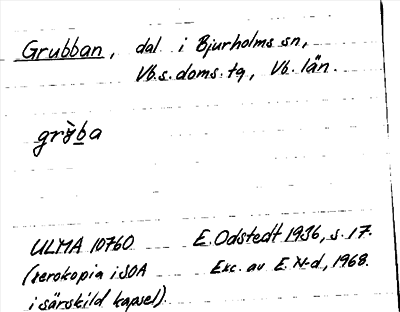 Grubban, dal i Bjurholms sn,
Vb.s.doms.tg, Vb. län.
grỳba
ULMA 10760 E. Odstedt 1936, s. 17.
(xerokopia i SOA Exc. av E. N-d, 1968.
i särskild kapsel).